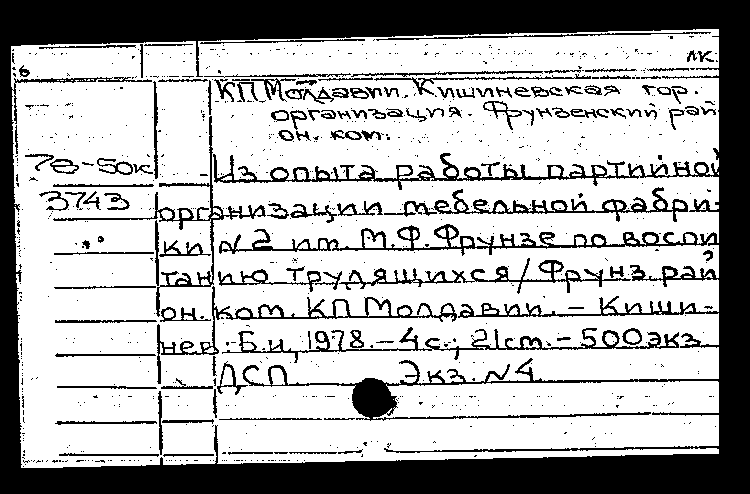 мк.
КП Молдавии. Кишиневская гор.
организация. Фрунзенский рай-
он. ком.
78-50к Из опыта работы партийной
3743 организации мебельной фабри-
ки №2 им. М.Ф.Фрунзе по воспи
танию трудящихся/Фрунз. рай
он. ком. КП Молдавии. – Киши-
нев: Б.и, 1978. – 4с.; 21cm. – 500экз.
ДСП Экз. №4